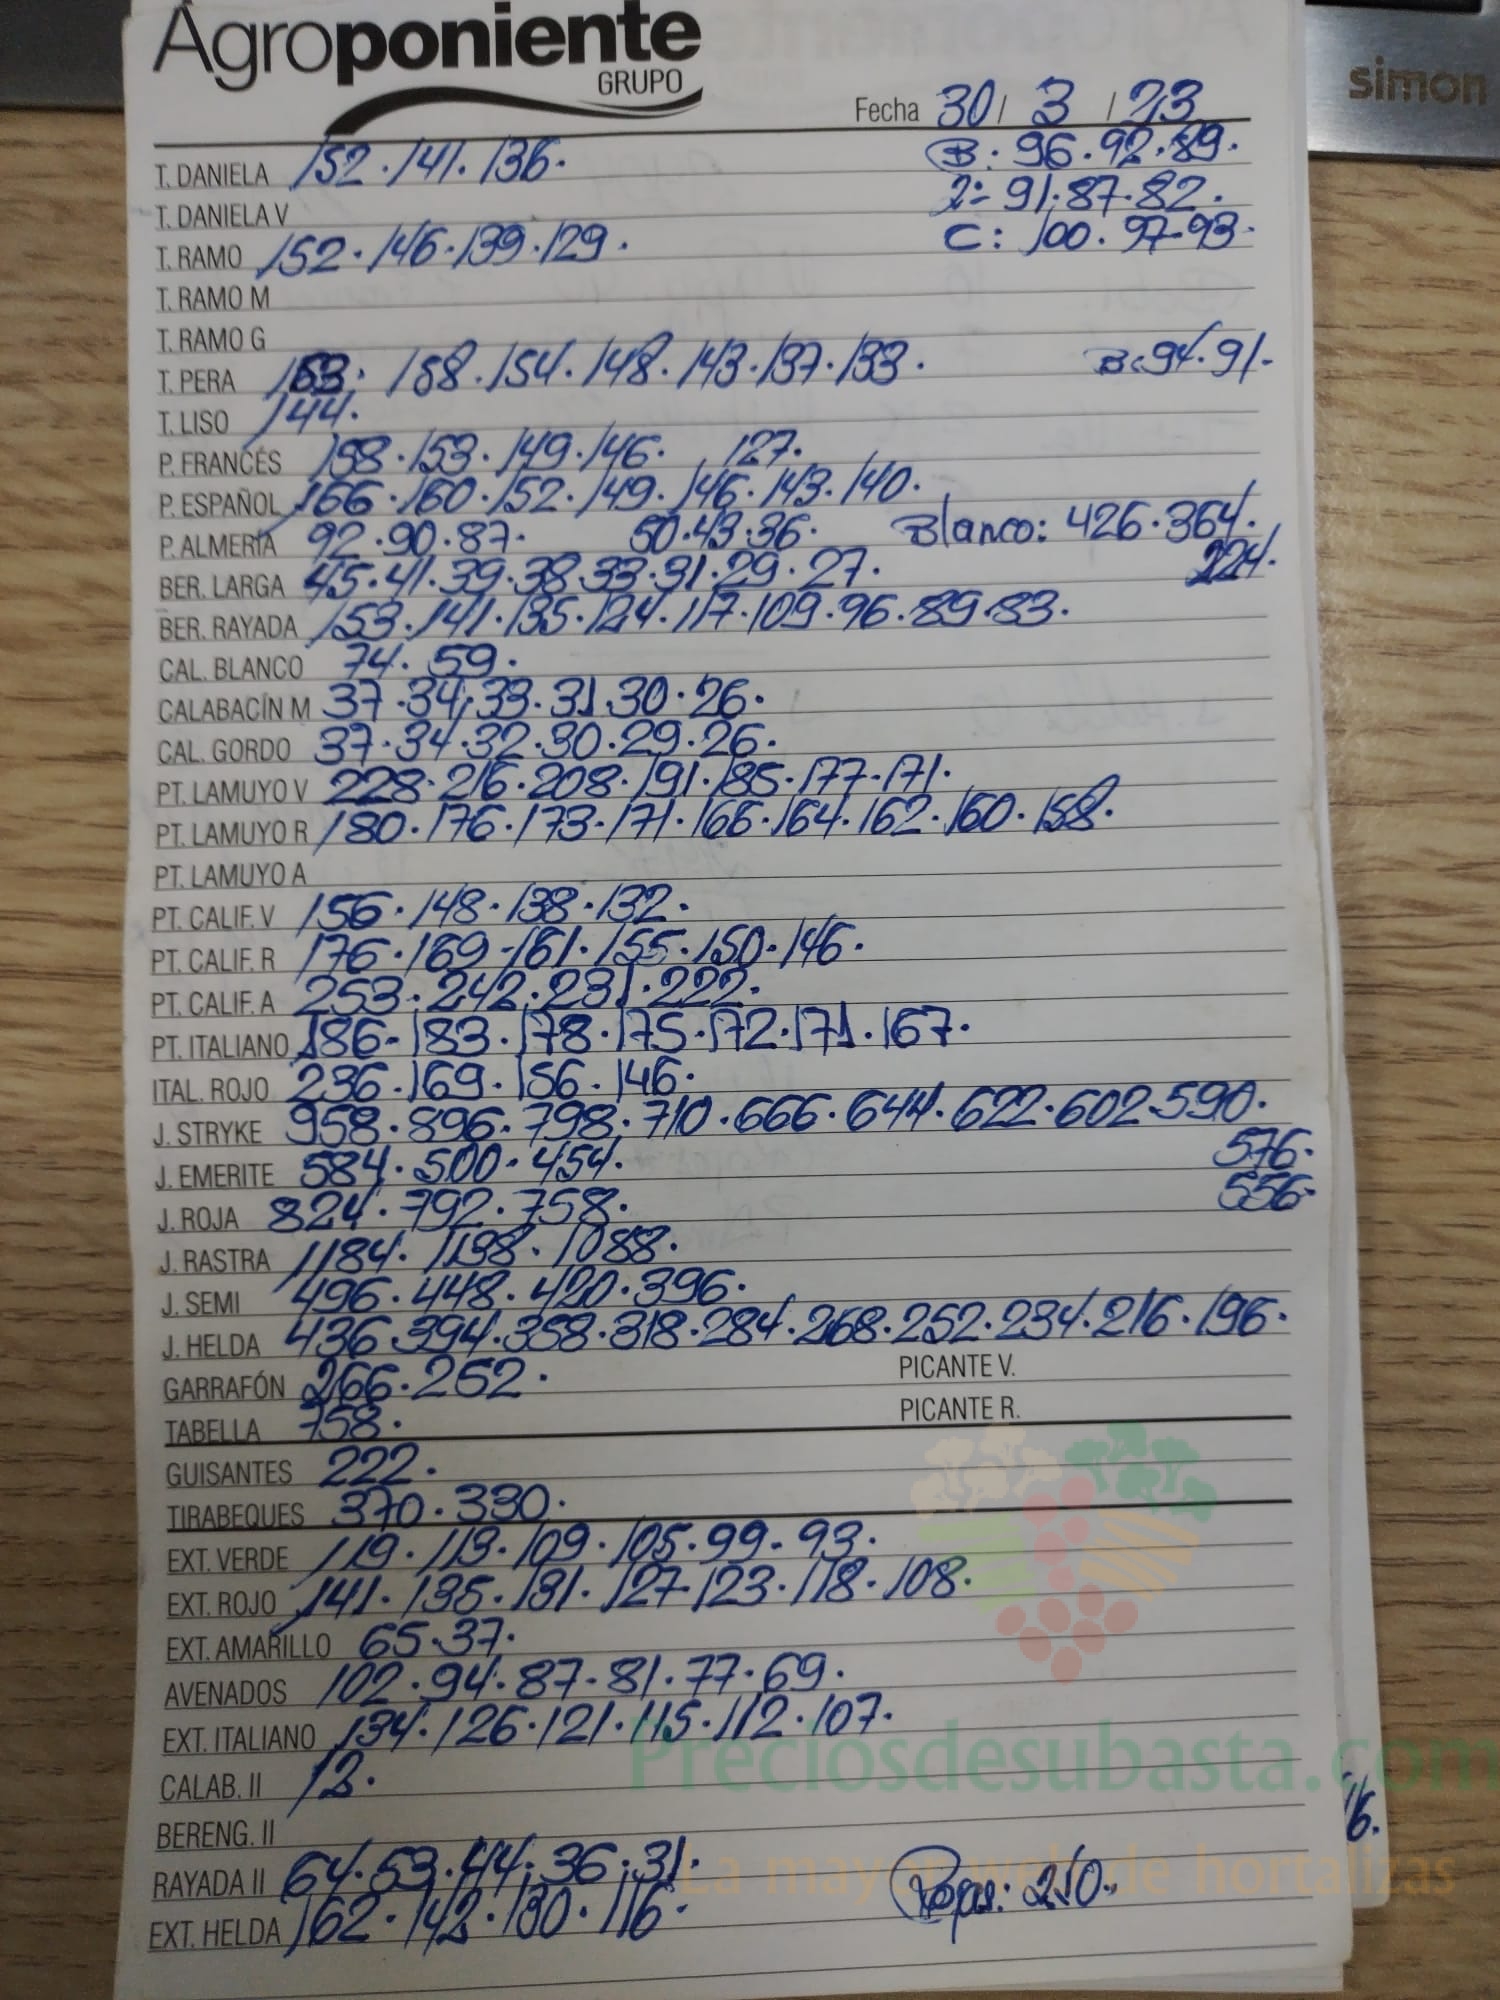 Agroponiente
GRUPO
simon
Fecha 30 / 3 / 23
T. DANIELA 152 . 141 . 136 . B : 96 . 92 . 89 .
T. DANIELA V 2 = 91 . 87 . 82 .
T. RAMO 152 . 146 . 139 . 129 . C : 100 . 97 . 93 .
T. RAMO M
T. RAMO G
T. PERA 163 . 158 . 154 . 148 . 143 . 137 . 133 . B : 94 . 91 .
T. LISO 144 .
P. FRANCÉS 158 . 153 . 149 . 146 . 127 .
P. ESPAÑOL 166 . 160 . 152 . 149 . 146 . 143 . 140 .
P. ALMERÍA 92 . 90 . 87 . 50 . 43 . 36 . Blanco : 426 . 364 .
224 .
BER. LARGA 45 . 41 . 39 . 38 . 33 . 31 . 29 . 27 .
BER. RAYADA 153 . 141 . 135 . 124 . 117 . 109 . 96 . 89 . 83 .
CAL. BLANCO 74 . 59 .
CALABACÍN M 37 . 34 . 33 . 31 . 30 . 26 .
CAL. GORDO 37 . 34 . 32 . 30 . 29 . 26 .
PT. LAMUYO V 228 . 216 . 208 . 191 . 185 . 177 . 171 .
PT. LAMUYO R 180 . 176 . 173 . 171 . 166 . 164 . 162 . 160 . 158 .
PT. LAMUYO A
PT. CALIF. V 156 . 148 . 138 . 132 .
PT. CALIF. R 176 . 169 . 161 . 155 . 150 . 146 .
PT. CALIF. A 253 . 242 . 231 . 222 .
PT. ITALIANO 186 - 183 . 178 . 175 . 172 . 171 . 167 .
ITAL. ROJO 236 . 169 . 156 . 146 .
J. STRYKE 958 . 896 . 798 . 710 . 666 . 644 . 622 . 602 . 590 .
576 .
J. EMERITE 584 . 500 . 454 .
556 .
J. ROJA 824 . 792 . 758 .
J. RASTRA 1184 . 1138 . 1088 .
J. SEMI 496 . 448 . 420 . 396 .
J. HELDA 436 . 394 . 358 . 318 . 284 . 268 . 252 . 234 . 216 . 196 .
GARRAFÓN 266 . 252 . PICANTE V.
TABELLA 758 . PICANTE R.
GUISANTES 222 .
TIRABEQUES 370 . 330 .
EXT. VERDE 119 . 113 . 109 . 105 . 99 . 93 .
EXT. ROJO 141 . 135 . 131 . 127 . 123 . 118 . 108 .
EXT. AMARILLO 65 . 37 .
AVENADOS 102 . 94 . 87 . 81 . 77 . 69 .
EXT. ITALIANO 134 . 126 . 121 . 115 . 112 . 107 .
Preciosdesubasta.com
CALAB. II 12 .
BERENG. II
16 .
RAYADA II 64 . 53 . 44 . 36 . 31 .
La mayor web de hortalizas
Pepas : 210 .
EXT. HELDA 162 . 142 . 130 . 116 .